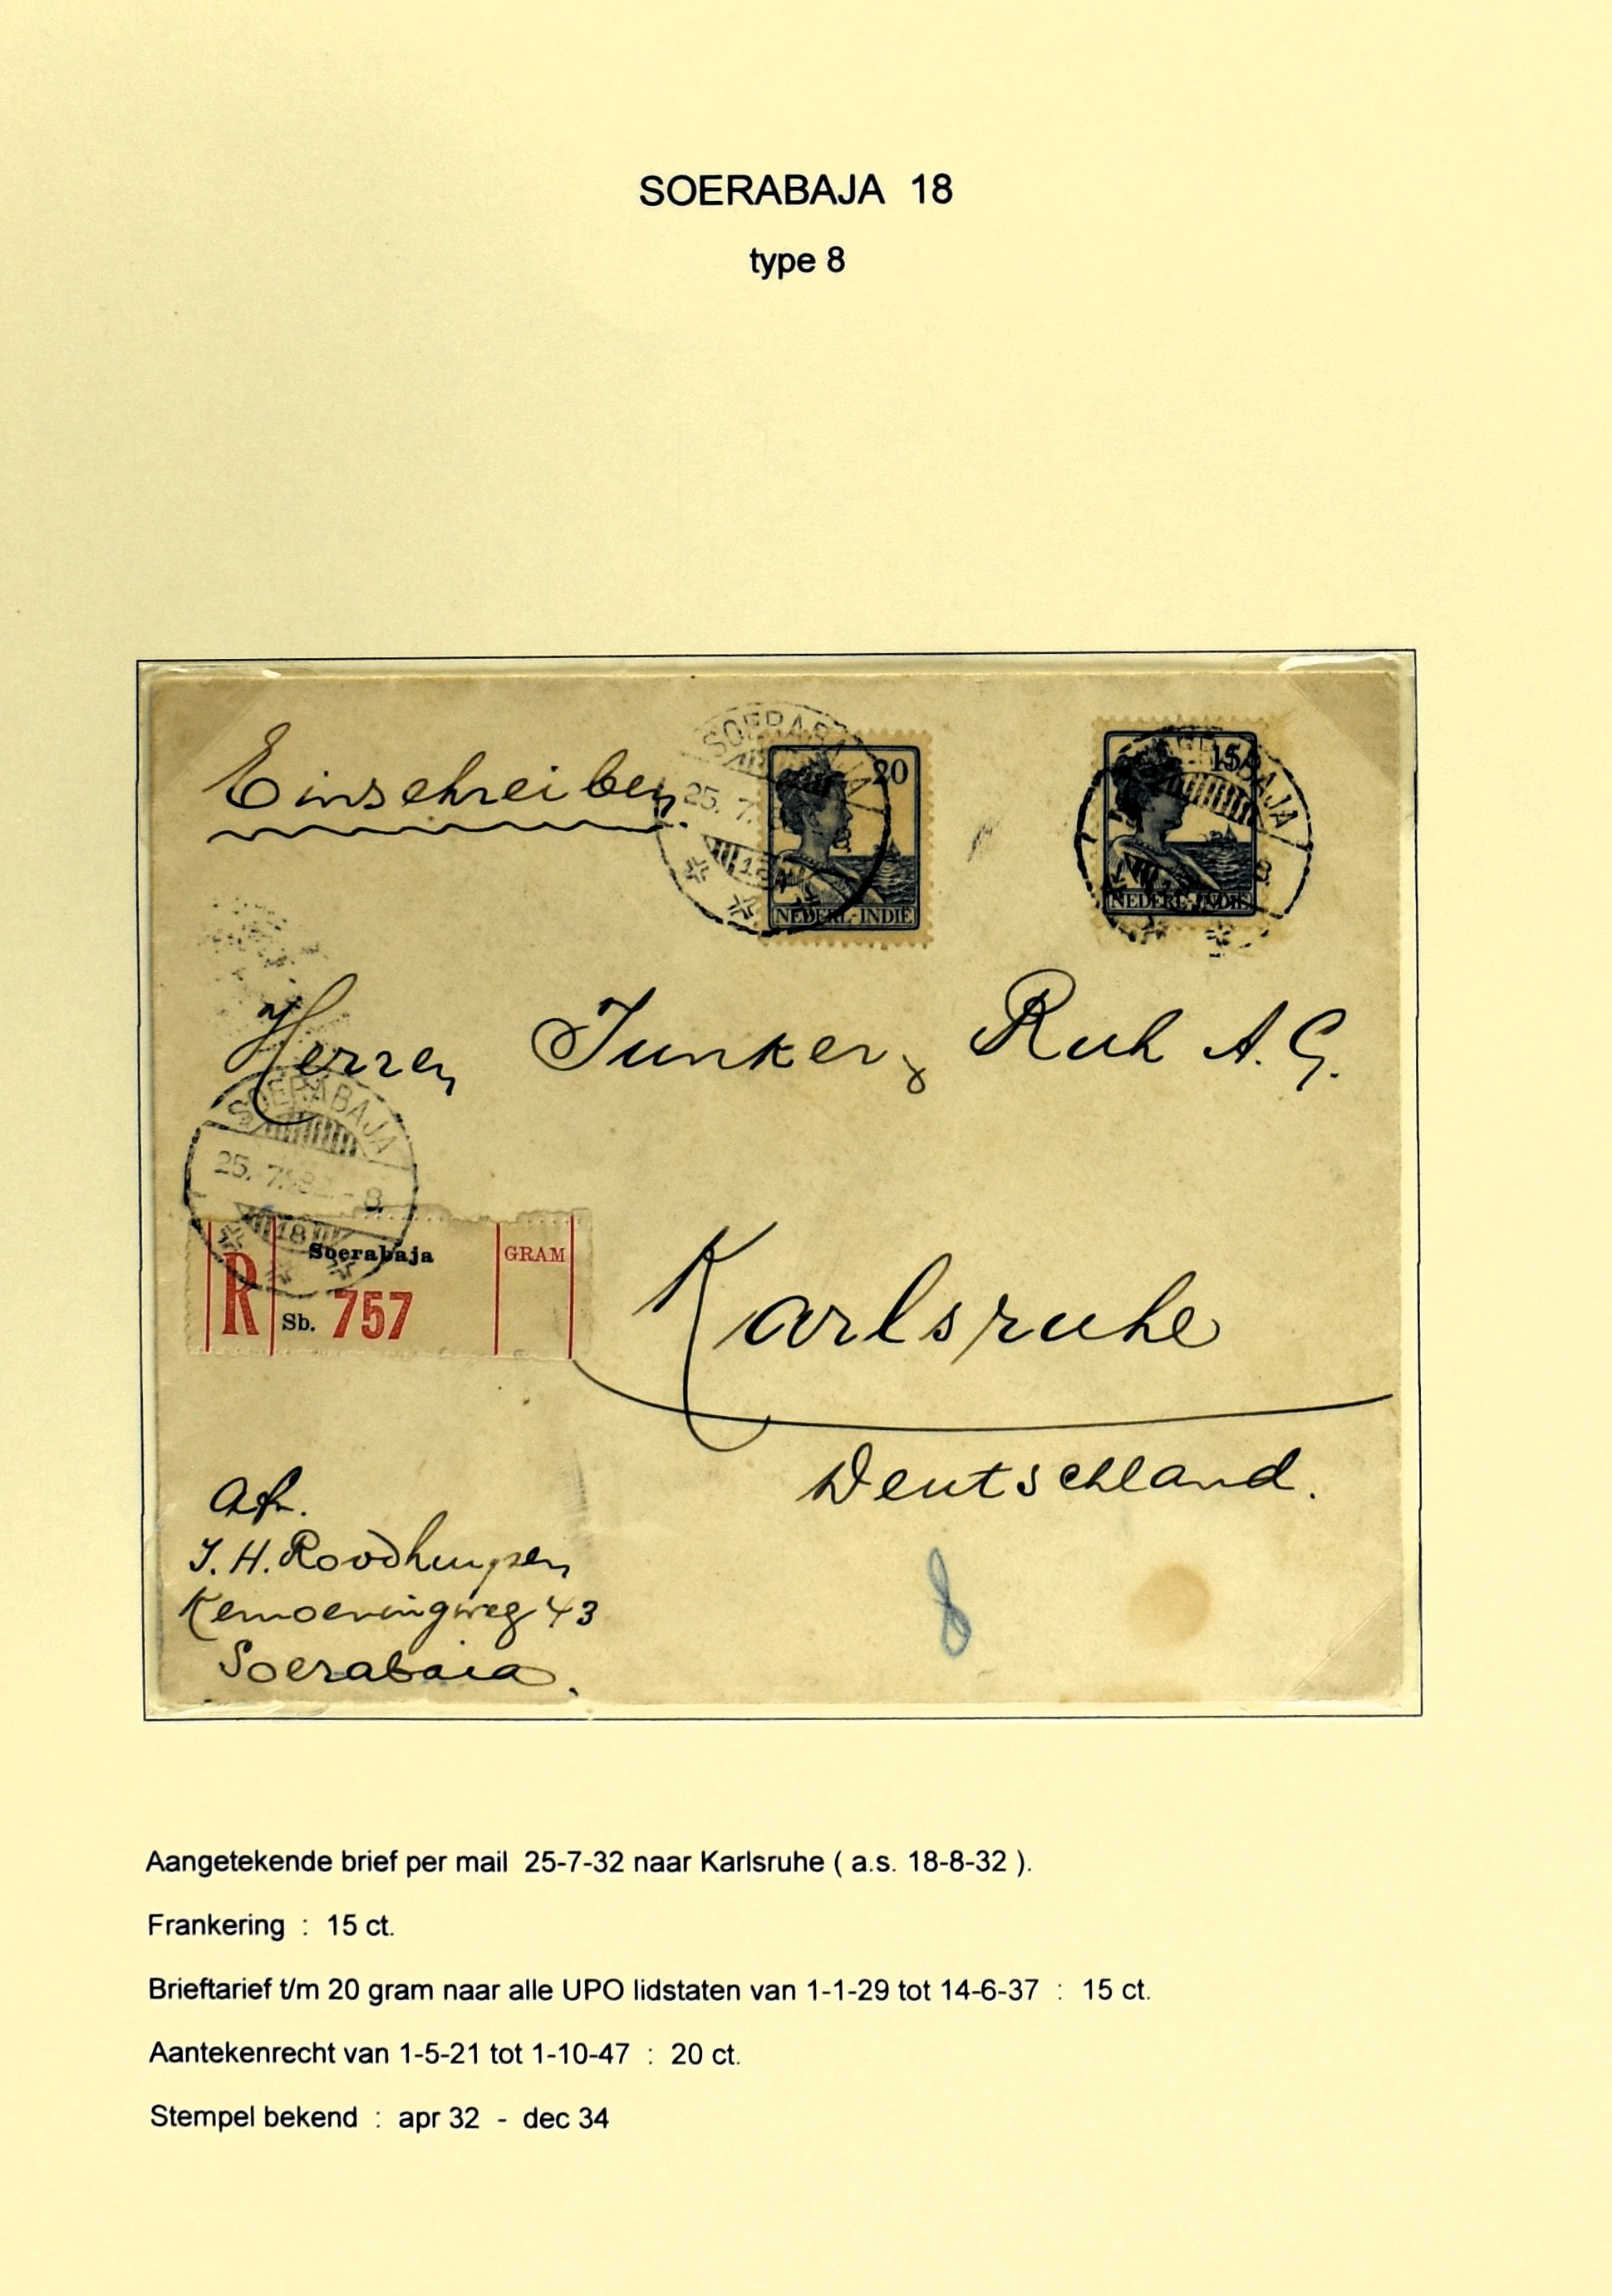 SOERABAJA 18
type 8
Einschreiben.
SOERABAJA
25. 7.
18
20
NEDERL-INDIË
15
NEDERL-INDIË
Herren Junker & Ruh A.G.
SOERABAJA
25. 7. 32. - 8.
18
R
Soerabaja
Sb. 757
GRAM
Karlsruhe
Deutschland.
Afz.
J. H. Roodhuyzen
Kemoeningweg 43
Soerabaia.
8
Aangetekende brief per mail 25-7-32 naar Karlsruhe ( a.s. 18-8-32 ).
Frankering : 15 ct.
Brieftarief t/m 20 gram naar alle UPO lidstaten van 1-1-29 tot 14-6-37 : 15 ct.
Aantekenrecht van 1-5-21 tot 1-10-47 : 20 ct.
Stempel bekend : apr 32 - dec 34